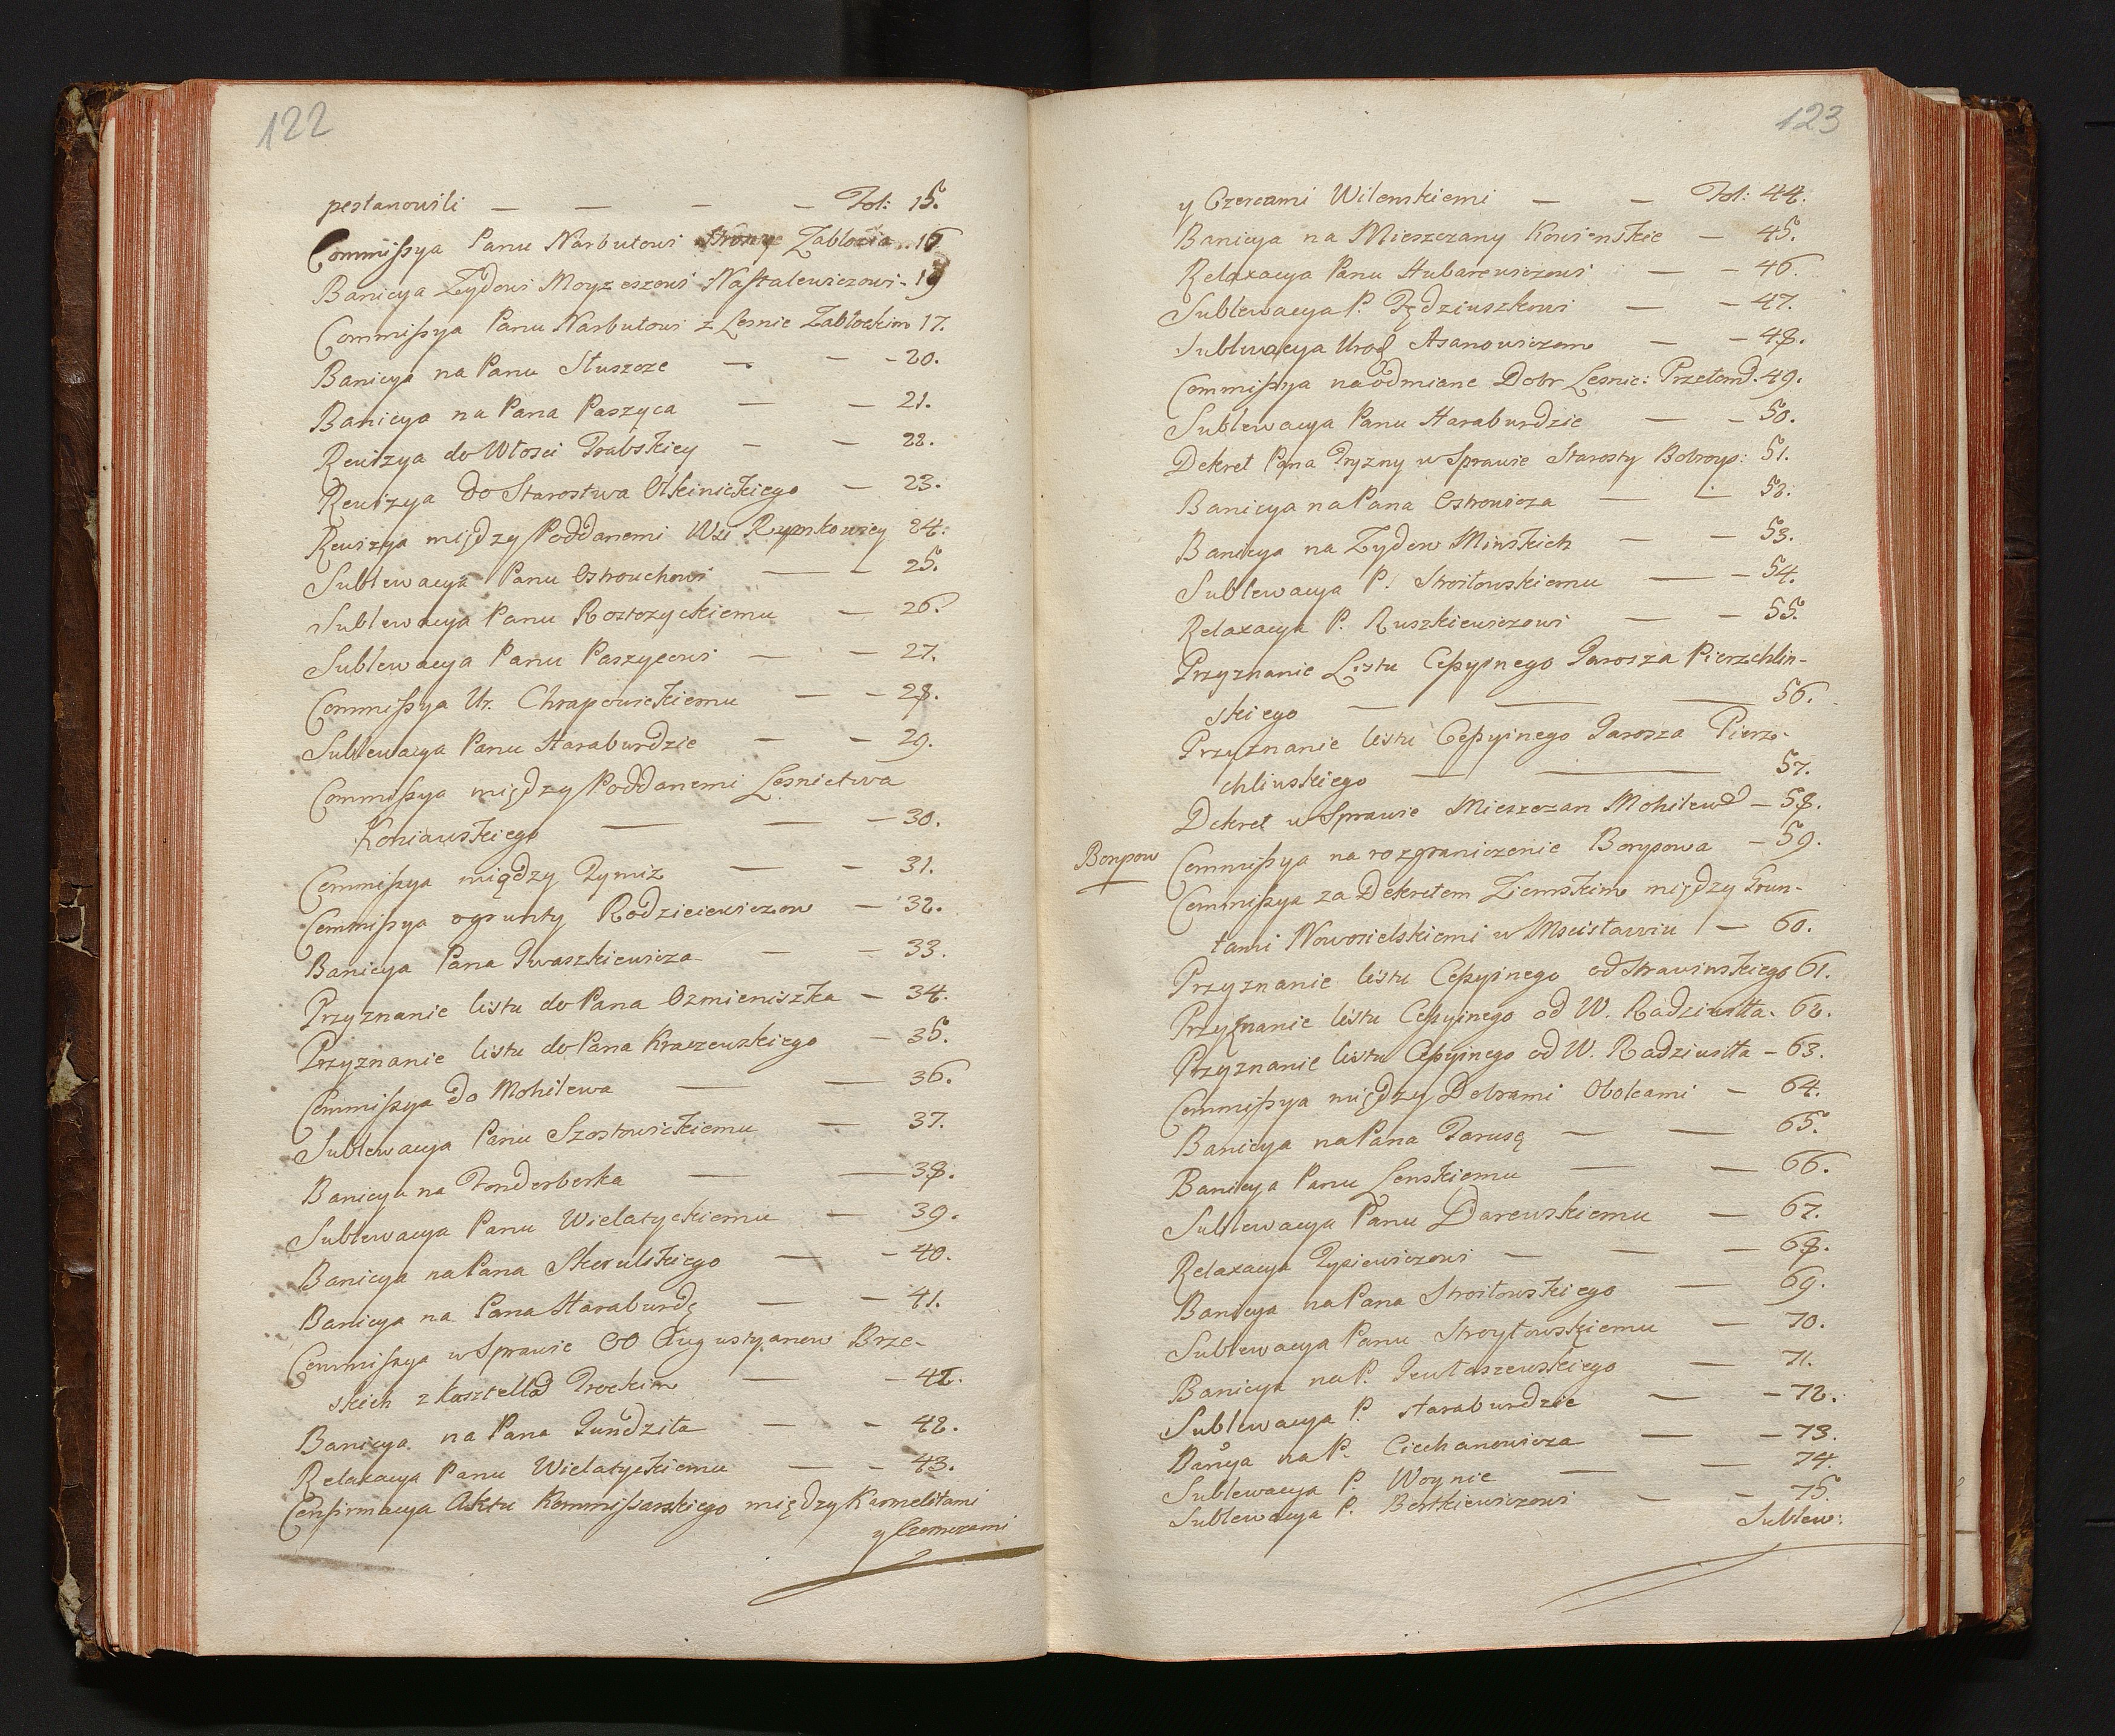 122
postanowili — — — — Fol: 15.
Commissya Panu Narbutowi Strony Zablozia .. 16
Banicya Zydowi Moyzeszowi Naftalewiczowi - 19
Commissya Panu Narbutowi z Lesnic Zablockim 17.
Banicya na Panu Stuszcze — — - 20.
Banicya na Pana Paszyca — — 21.
Rewizya do Włosci Grabskiey — — 22.
Rewizya do Starostwa Olkinickiego — 23.
Rewizya między Poddanemi Wsi Rymkowicy 24.
Sublewacya Panu Ostrouchowi — — 25.
Sublewacya Panu Rostozyckiemu — 26.
Sublewacya Panu Paszycowi — — 27.
Commissya Ur. Chrapowickiemu — — 28.
Sublewacya Panu Haraburdzie — — 29.
Commissya między Poddanemi Lesnictwa
Koniawskiego — — — 30.
Commissya między Tymiż — — 31.
Commissya o grunty Rodzieciewiczow — 32.
Banicya Pana Iwaszkiewicza — — 33.
Przyznanie listu do Pana Ozmieniszka — 34.
Przyznanie listu do Pana Kraczewskiego — 35.
Commissya do Mohilewa — — 36.
Sublewacya Panu Szostowickiemu — 37.
Banicya na Fonderberka — — 38.
Sublewacya Panu Wielatyckiemu — 39.
Banicya na Pana Skerulskiego — - 40.
Banicya na Pana Haraburdę — — 41.
Commissya w Sprawie OO Augustyanow Brze-
skich z Kasztellad Trockim — - 42.
Banicya na Pana Gundziła — - 42.
Relaxacya Panu Wielatyckiemu — - 43.
Confirmacya Aktu Kommissarskiego między Karmelitami
y Czerncami
123
y Czercami Wilenskiemi — — Fol: 44.
Banicya na Mieszczany Kowienskie — 45.
Relaxacya Panu Hubarewiczowi — - 46.
Sublewacya P. Jędziuszkowi — - 47.
Sublewacya Urod Asanowiczom — - 48.
Commissya na odmiane Dobr Lesnic: Przełomd. 49.
Sublewacya Panu Haraburdzie — - 50.
Dekret Pana Tryzny w Sprawie Starosty Bobroys: 51.
Banicya na Pana Ostrowicza — — 52.
Banicya na Zydow Minskich — — 53.
Sublewacya P. Stroiłowskiemu — - 54.
Relaxacya P. Ruszkiewiczowi — — 55.
Przyznanie Listu Cessyinego Jarosza Pierzchlin-
skiego — — — 56.
Przyznanie listu Cessyinego Jarosza Pierz-
chlinskiego — — 57.
Dekret w Sprawie Mieszczan Mohilewd — 58.
Borysow
Commissya na rozgraniczenie Borysowa — 59.
Commissya za Dekretem Ziemskim między Grun-
tami Nowosielskiemi w Mscisławiu — 60.
Przyznanie listu Cessyinego od Strawinskiego 61.
Przyznanie listu Cessyinego od W. Radziwiłła. 62.
Przyznanie listu Cessyinego od W. Radziwiłła - 63.
Commissya między Dobrami Obolcami — 64.
Banicya na Pana Jarusę — — 65.
Banicya Panu Lenskiemu — — 66.
Sublewacya Panu Darewskiemu — 67.
Relaxacya Zysiewiczowi — — — 68.
Banicya na Pana Stroiłowskiego — 69.
Sublewacya Panu Stroyłowskiemu — 70.
Banicya na P. Jewłaszewskiego — 71.
Sublewacya P. Haraburdzie — - 72.
Banicya na P. Ciechanowicza — - 73.
Sublewacya P. Woynie — — 74.
Sublewacya P. Bertkiewiczowi — - 75.
Sublew: